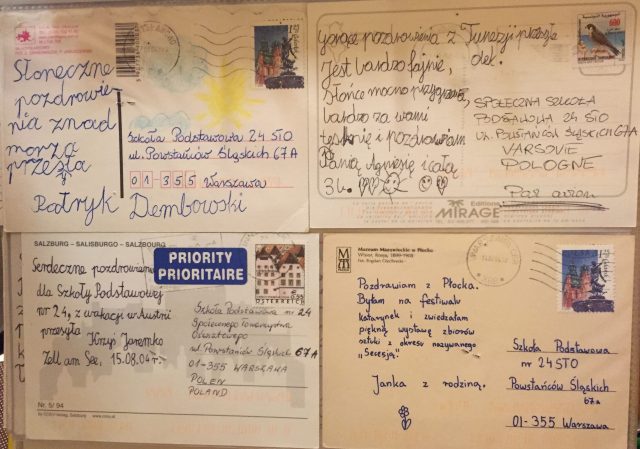 Słoneczne
pozdrowie-
nia znad
morza
przesyła
Patryk Dembowski
Szkoła Podstawowa 24 STO
ul. Powstańców Śląskich 67A
01-355 Warszawa
Gorące pozdrowienia z Tunezji przesyła
Olek.
Jest bardzo fajnie,
Słońce mocno przygrzewa,
bardzo za wami
tęsknię i pozdrawiam
Panią Agnieszkę i całą
3b.
600
SPOŁECZNA SZKOŁA
PODSTAWOWA 24 STO
UL. POWSTAŃCÓW ŚLĄSKICH 67A
VARSOVIE
POLOGNE
Par avion
Editions
MIRAGE
SALZBURG – SALISBURGO – SALZBOURG
PRIORITY
PRIORITAIRE
ÖSTERREICH
0.55
Serdeczne pozdrowienia
dla Szkoły Podstawowej
nr 24, z wakacji w Austrii
przesyła Krzyś Jaremko
Zell am See, 15.08.04r.
Szkoła Podstawowa nr 24
Społecznego Towarzystwa
Oświatowego
ul. Powstańców Śląskich 67A
01-355 WARSZAWA
POLEN
POLAND
Nr. 5/94
Muzeum Mazowieckie w Płocku
Pozdrawiam z Płocka.
Byłam na festiwalu
katarynek i zwiedzałam
piękną wystawę zbiorów
sztuki z okresu nazywanego
„Secesją”
Janka z rodziną.
Szkoła Podstawowa
nr 24 STO
Powstańców Śląskich
67a
01-355 Warszawa